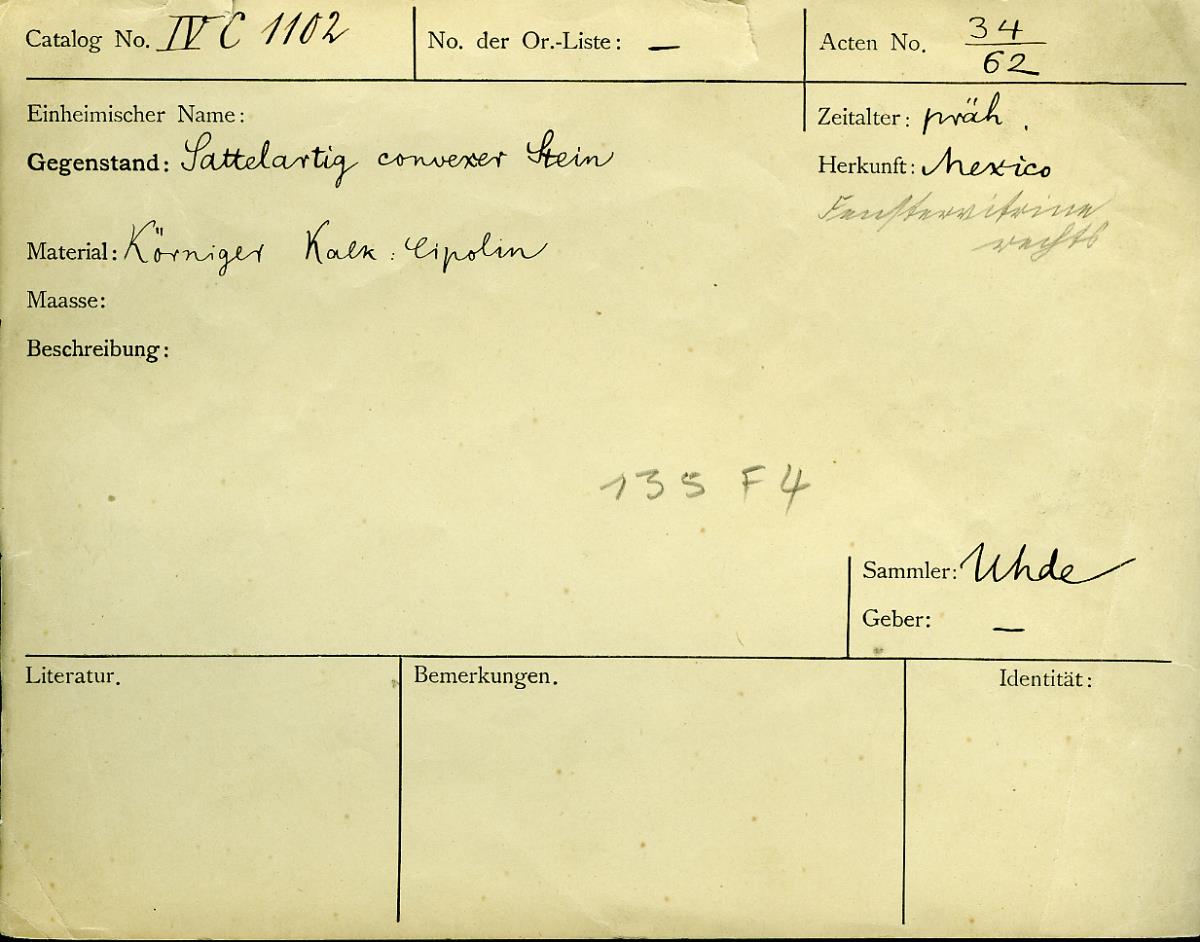 Catalog No. IV C 1102
No. der Or.-Liste: —
Acten No. 34/62
Einheimischer Name:
Zeitalter: präh.
Gegenstand: Sattelartig convexer Stein
Herkunft: Mexico
Fenstervitrine
rechts
Material: Körniger Kalk: Cipolin
Maasse:
Beschreibung:
135 F 4
Sammler: Uhde
Geber: —
Literatur.
Bemerkungen.
Identität: